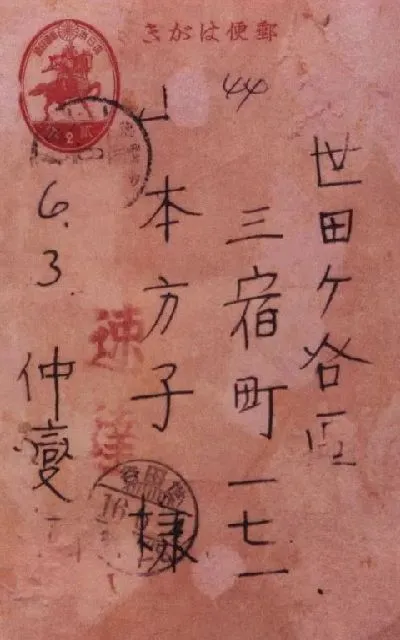 郵便はがき
世田ケ谷区
三宿町一七一
山本方子様
速達
6.3 仲
2
16